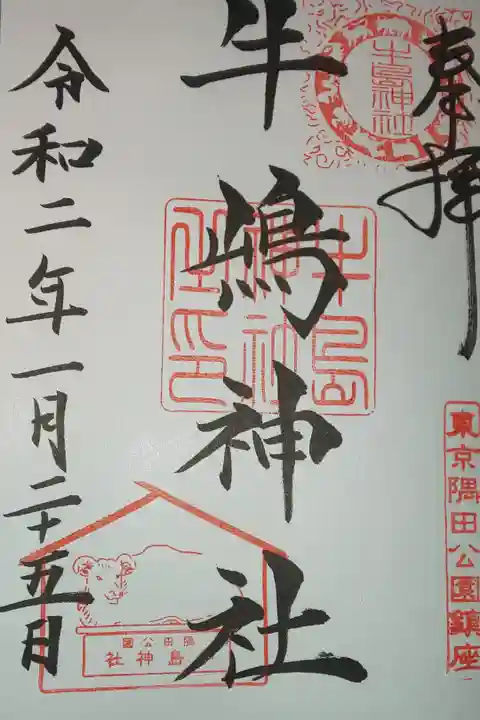 奉拝
東京隅田公園鎮座
牛島神社
牛嶋神社
牛島神社之印
隅田公園
牛島神社
令和二年一月二十五日